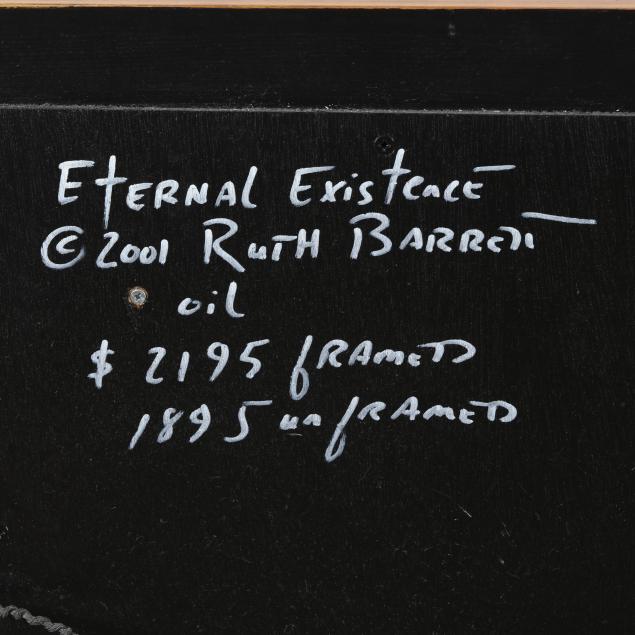 Eternal Existence
© 2001 Ruth Barrett
oil
$ 2195 framed
1895 unframed